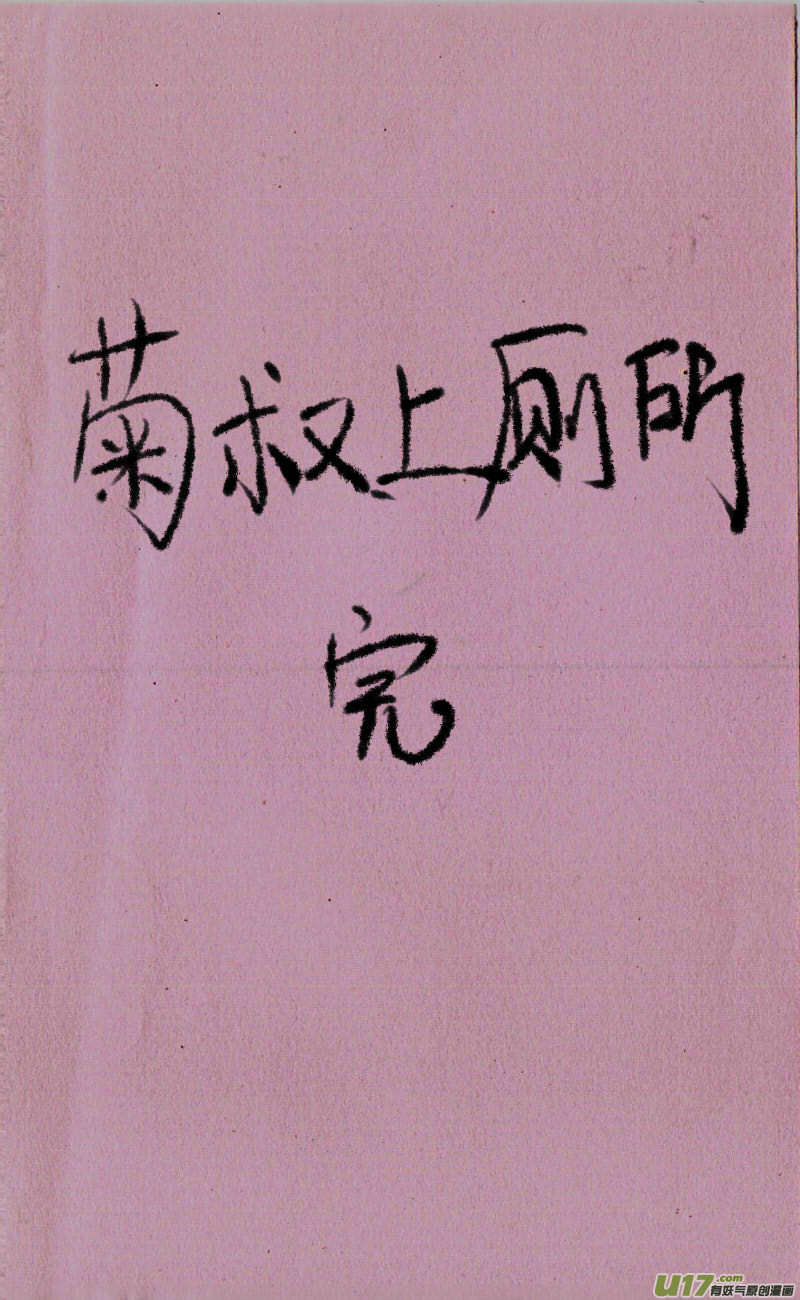 菊叔上厕所
完
U17.com
有妖气原创漫画